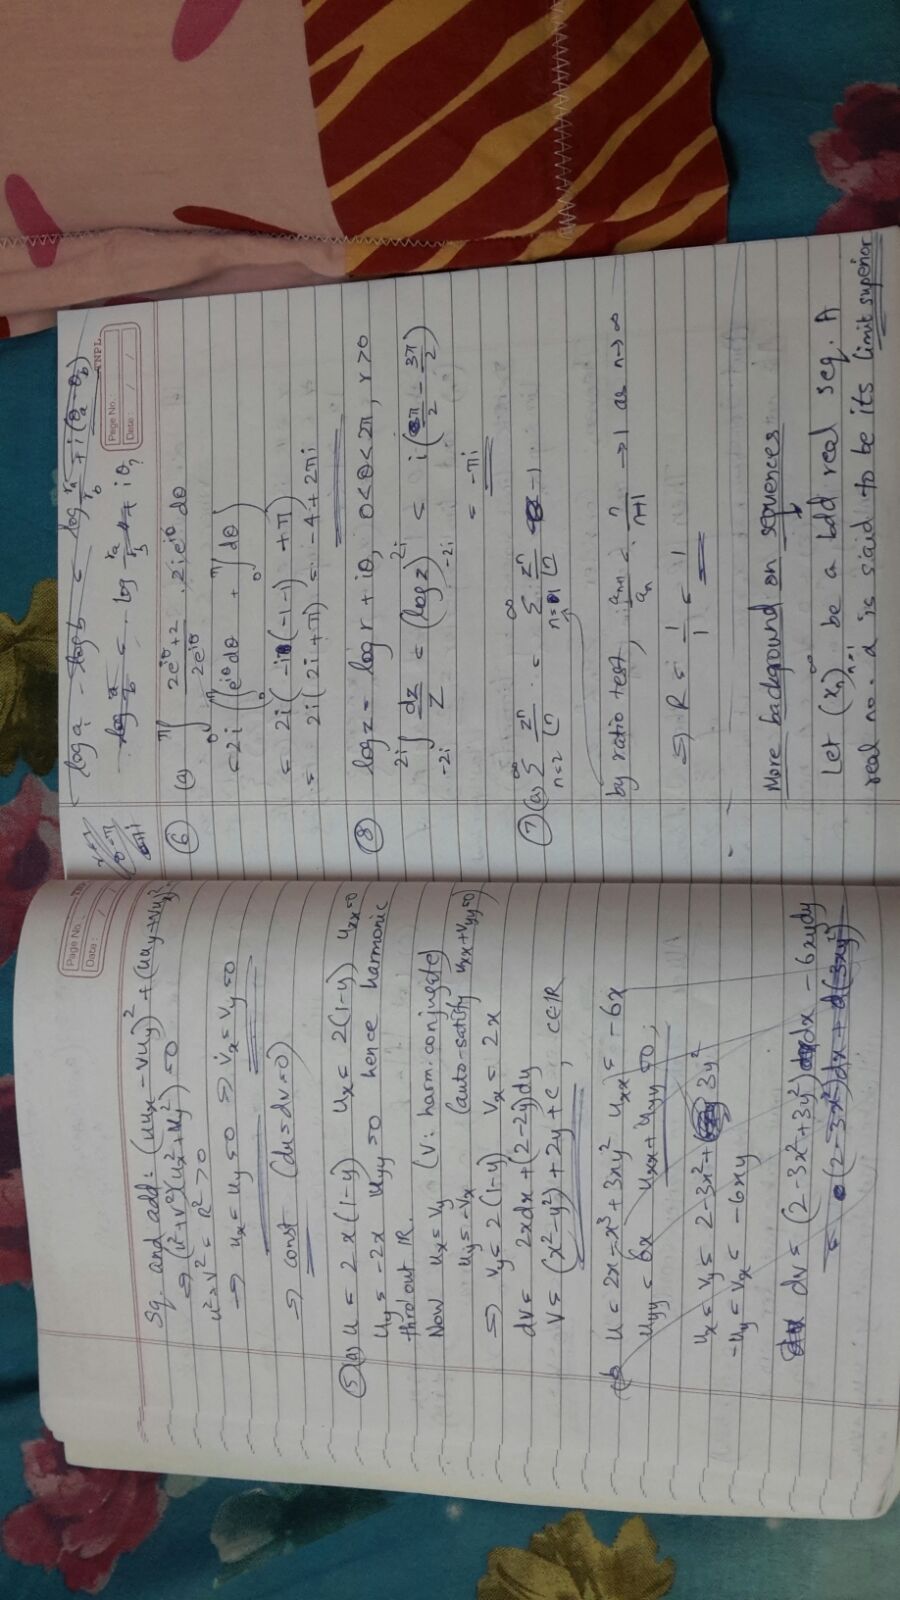 Page No.:
Date:
Sq. and add: (uux - vuy)² + (uuy + vux)² =
⇒ (u²+v²)(ux²+uy²) = 0
u²+v² = R² > 0
⇒ ux = uy = 0 ⇒ vx = vy = 0
⇒ const (du=dv=0)
⑤ (a) u = 2x(1-y) ux = 2(1-y) uxx=0
uy = -2x uyy = 0 hence harmonic
thro'out IR.
Now ux = vy (v: harm. conjugate)
uy = -vx (auto-satisfy uxx+vyy=0)
⇒ vy = 2(1-y) vx = 2x
dv = 2xdx + (2-2y)dy
v = (x²-y²) + 2y + c, c∈IR
(b) u = 2x - x³ + 3xy² uxx = -6x
uyy = 6x uxx + uyy = 0;
ux = vy = 2-3x²+ 3y²
-uy = vx = -6xy
dv = (2-3x²+3y²) dx - 6xydy
= (2-3x²)dx + d(3xy²)
Page No.:
Date:
TNPL
log a - log b = log ra/rb + i(θa-θb)
log a/b = log ra/rb + iθ,
⑥ (a) ∫0^π (2e^iθ + 2)/(2e^iθ) . 2ie^iθ dθ
= 2i (∫0^π e^iθ dθ + ∫0^π dθ)
= 2i (-i(-1-1) + π)
= 2i (2i + π) = -4 + 2πi
⑧ log z = log r + iθ, 0<θ<2π, r>0
∫-2i^2i dz/z = (log z)-2i^2i = i(π/2 - 3π/2)
= -πi
⑦ (a) Σn=2^∞ z^n/n = Σn=1^∞ z^n/n - 1
by ratio test, an+1/an = n/n+1 → 1 as n→∞
⇒ R = 1/1 = 1
More background on sequences
Let (xn)n=1^∞ be a bdd real seq. A
real no. α is said to be its limit superior